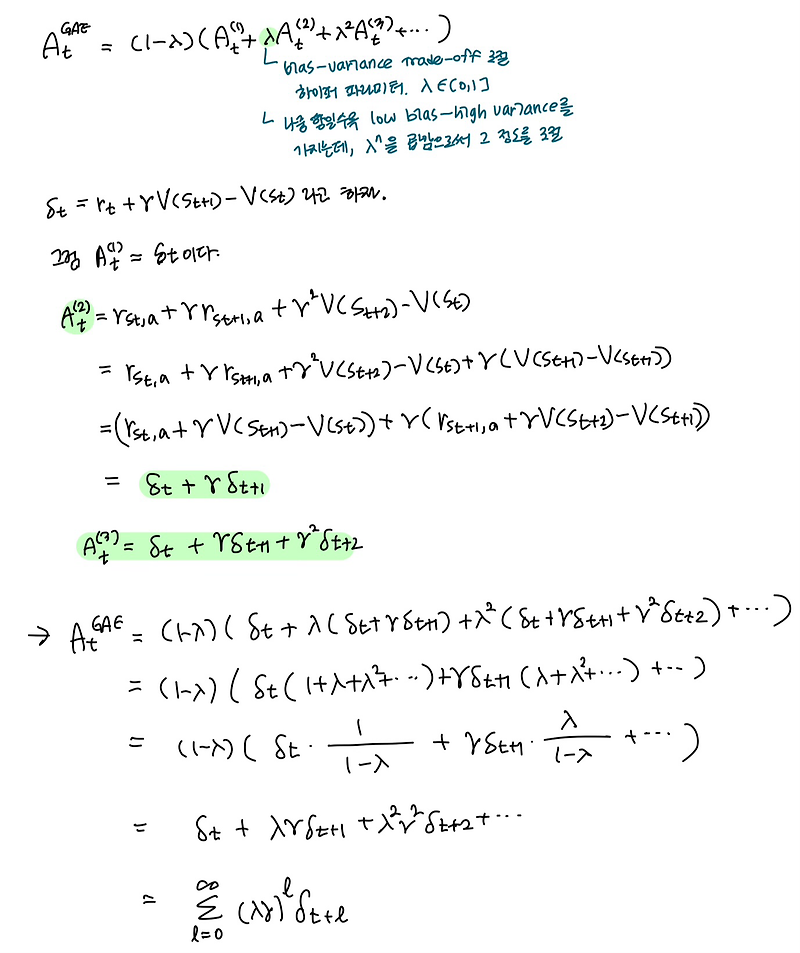 A_t^{GAE} = (1-λ)(A_t^{(1)} + λA_t^{(2)} + λ²A_t^{(3)} + ⋯)
└ bias-variance trade-off 조절
하이퍼 파라미터. λ∈[0,1]
└ 나중 항일수록 low bias-high variance를
가지는데, λⁿ을 곱함으로써 그 정도를 조절
δ_t = r_t + γV(S_{t+1}) - V(S_t) 라고 하자.
그럼 A_t^{(1)} = δ_t 이다.
A_t^{(2)} = r_{St,a} + γr_{St+1,a} + γ²V(S_{t+2}) - V(S_t)
= r_{St,a} + γr_{St+1,a} + γ²V(S_{t+2}) - V(S_t) + γ(V(S_{t+1}) - V(S_{t+1}))
= (r_{St,a} + γV(S_{t+1}) - V(S_t)) + γ(r_{St+1,a} + γV(S_{t+2}) - V(S_{t+1}))
= δ_t + γδ_{t+1}
A_t^{(3)} = δ_t + γδ_{t+1} + γ²δ_{t+2}
→ A_t^{GAE} = (1-λ)(δ_t + λ(δ_t + γδ_{t+1}) + λ²(δ_t + γδ_{t+1} + γ²δ_{t+2}) + ⋯)
= (1-λ)(δ_t(1+λ+λ²+⋯) + γδ_{t+1}(λ+λ²+⋯) + ⋯)
= (1-λ)(δ_t · 1/(1-λ) + γδ_{t+1} · λ/(1-λ) + ⋯)
= δ_t + λγδ_{t+1} + λ²γ²δ_{t+2} + ⋯
= ∑_{l=0}^{∞} (λγ)^l δ_{t+l}